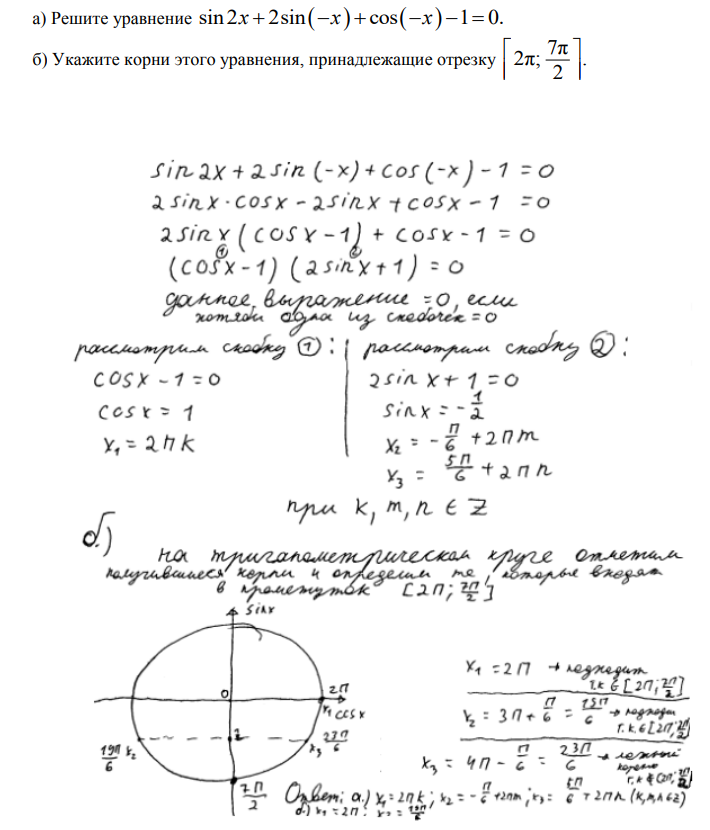 а) Решите уравнение sin2x + 2sin(−x) + cos(−x) − 1 = 0.
б) Укажите корни этого уравнения, принадлежащие отрезку [2π; 7π/2].
sin 2x + 2 sin (-x) + cos (-x) - 1 = 0
2 sin x · cos x - 2 sin x + cos x - 1 = 0
2 sin x (cos x - 1) + cos x - 1 = 0
① ②
(cos x - 1) (2 sin x + 1) = 0
данное выражение = 0, если
хотябы одна из скобочек = 0
рассмотрим скобку ①:
cos x - 1 = 0
cos x = 1
x₁ = 2πk
рассмотрим скобку ②:
2 sin x + 1 = 0
sin x = -1/2
x₂ = -π/6 + 2πm
x₃ = 5π/6 + 2πn
при k, m, n ∈ Z
б.)
на тригонометрическом круге отметим
получившиеся корни и определим те, которые входят
в промежуток [2π; 7π/2]
sin x
0
2π
x₁ cos x
19π/6 x₂
x₃ 23π/6
7π/2
x₁ = 2π → подходит
т.к ∈ [2π; 7π/2]
x₂ = 3π + π/6 = 19π/6 → подходи
т.к. ∈ [2π; 7π/2]
x₃ = 4π - π/6 = 23π/6 →
т,к ∉ [2π; 7π/2]
Ответ: а.) x₁ = 2πk; x₂ = -π/6 + 2πm; x₃ = 5π/6 + 2πn (k, m, n ∈ Z)
б.) x₁ = 2π; x₂ = 19π/6